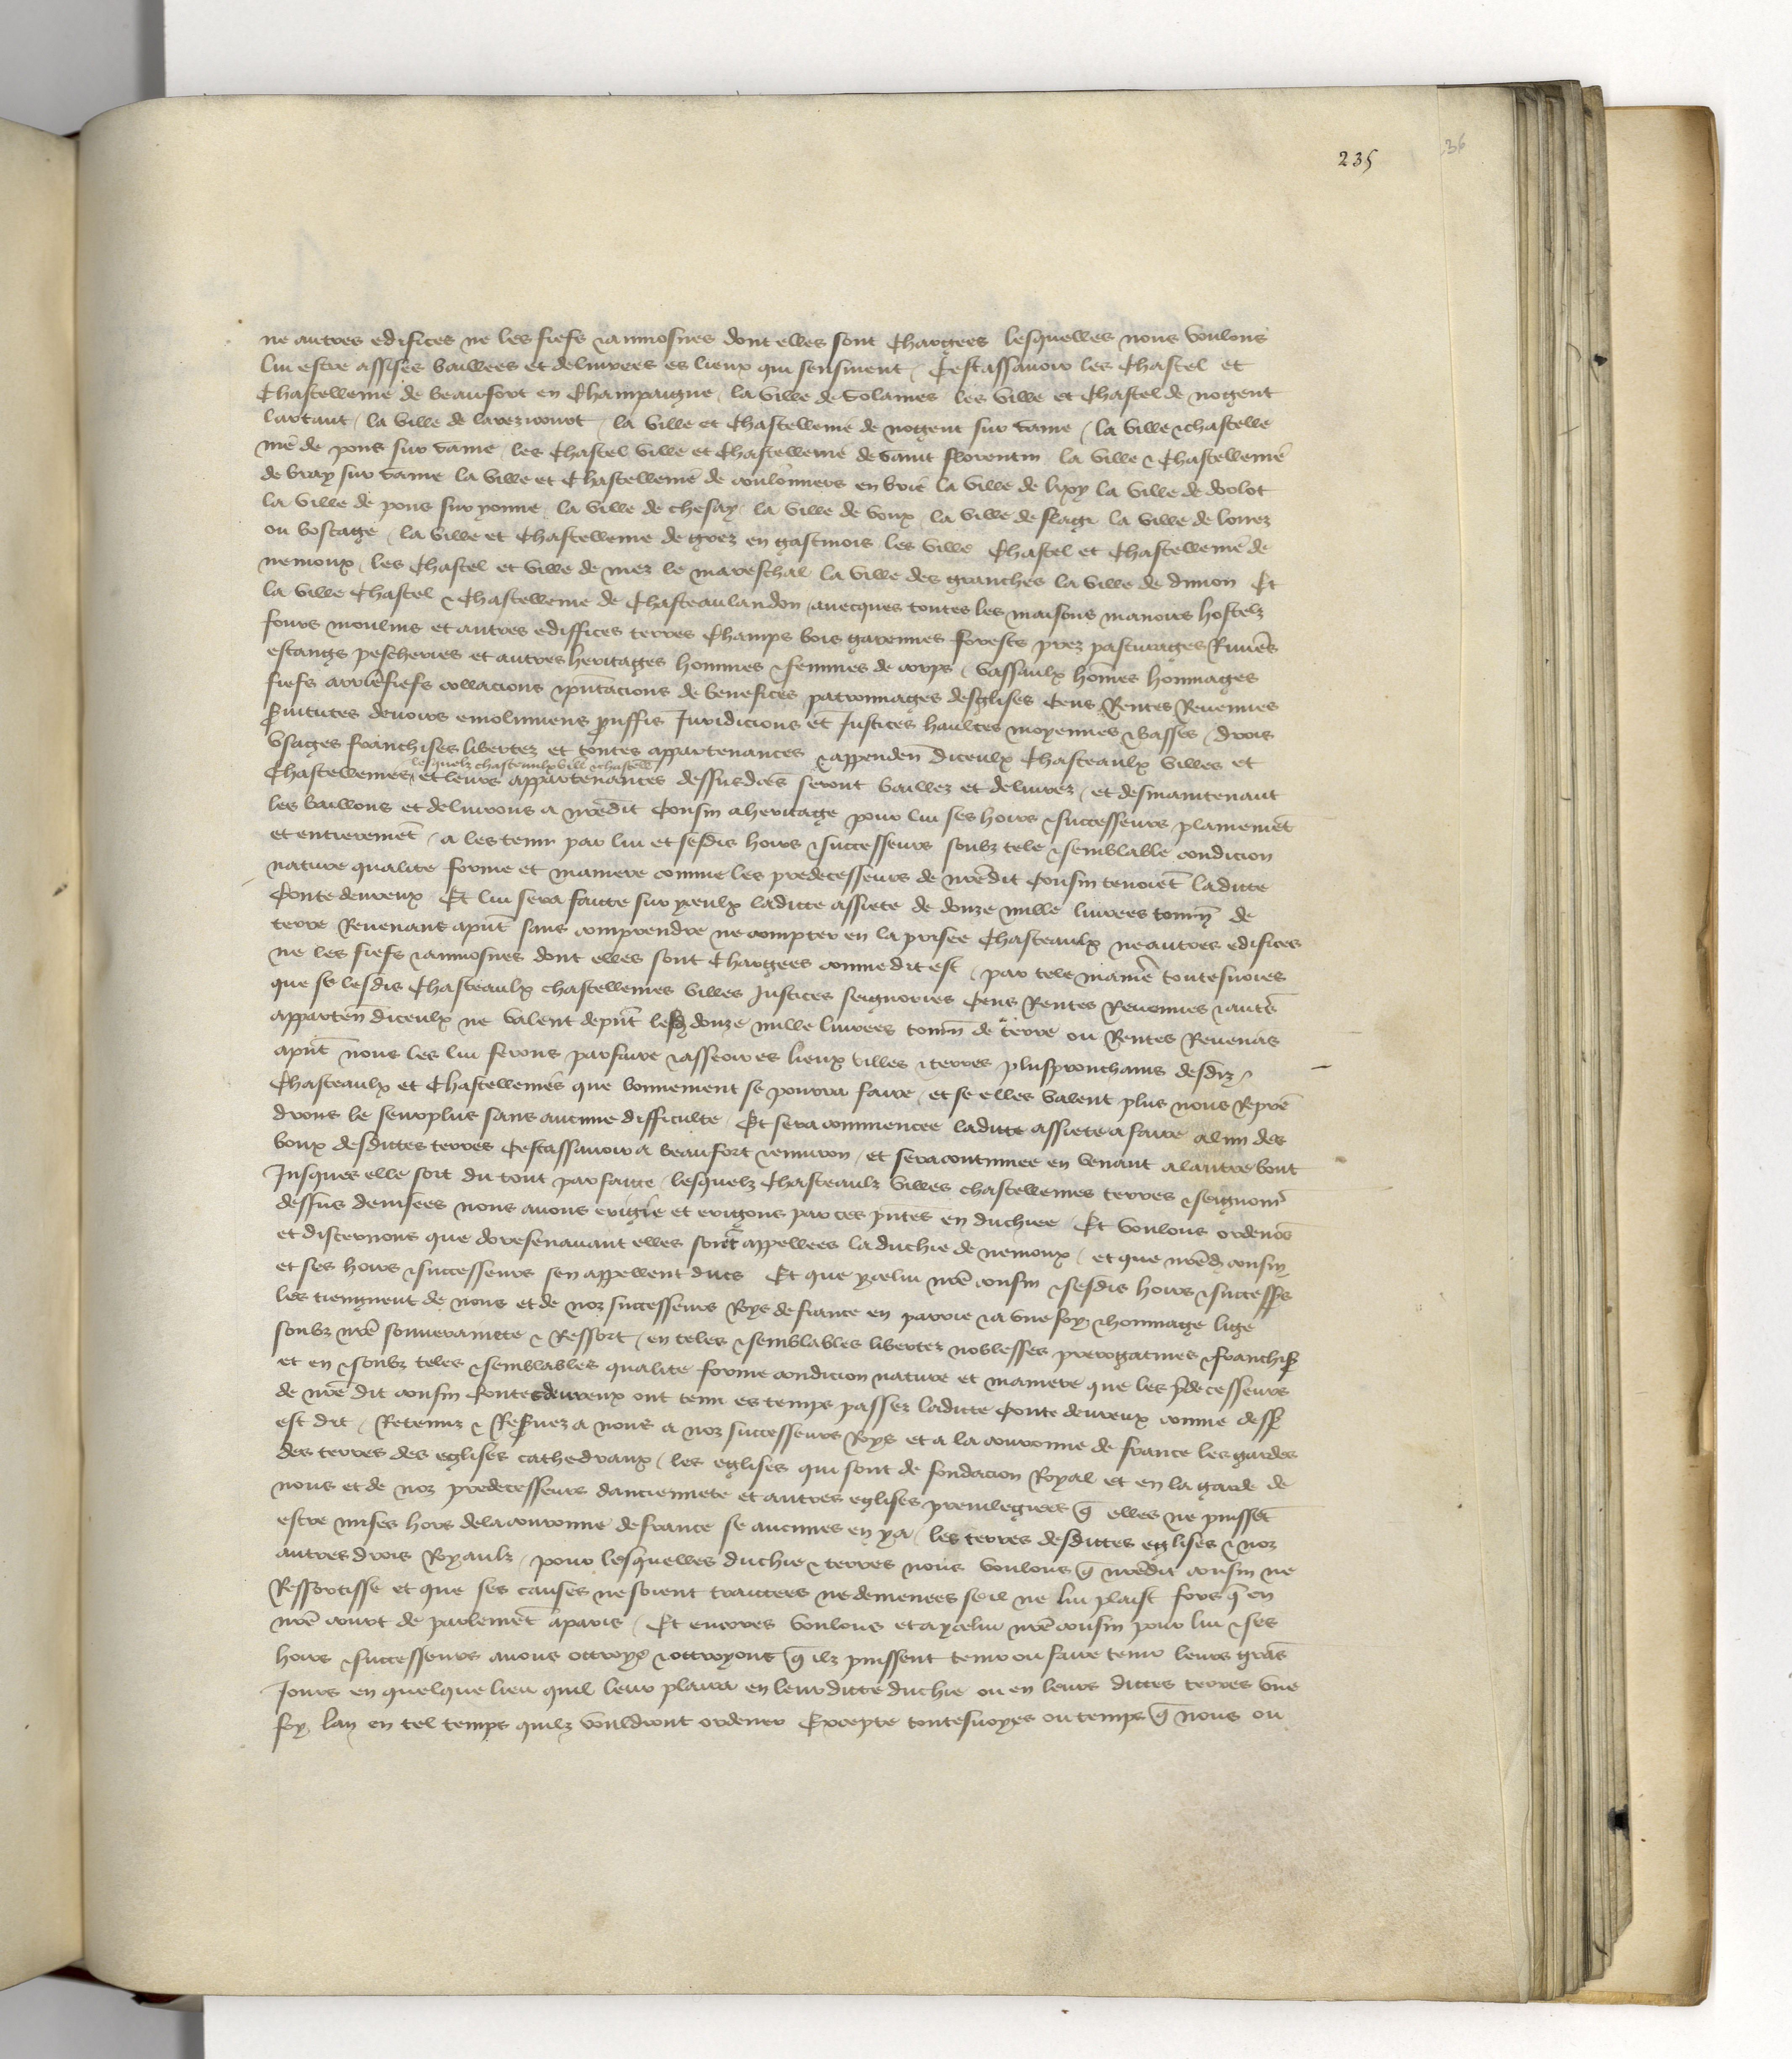 235
36
ne autres edifices ne les fiefs & aumosnes dont elles sont Chargees lesquelles nous voulons
lui estre assises baillees et deliurees es lieux qui sensuient / Cestassauoir les Chastel et
Chastellenie de beaufort en Champaigne / la ville de Solaines les ville et Chastel de nogent
lartaut / la ville de larzicourt / la ville et Chastellenie de nogent sur saine / la ville & chastelle
nie de pons sur saine / les Chastel ville et Chastellenie de saint florentin la ville & Chastellenie
de bray sur saine la ville et Chastellenie de coulomiers en brie la ville de lixy la ville de doolot
la ville de pons sur yonne / la ville de chesay / la ville de voux / la ville de flagi la ville de lorrez
ou boscage / la ville et Chastellenie de grez en gastinois les ville Chastel et Chastellenie de
nemoux / les Chastel et ville de mez le mareschal la ville des granches la ville de dimon Et
la ville Chastel & Chastellenie de Chasteaulandon / auecques toutes les maisons manoirs hostelz
fours moulins et autres ediffices terres Champs bois garennes forests prez pasturages Riuiēs
estangs pescheries et autres heritages hommes & femmes de corps / vassaulx hōmes hommages
fiefs arriēfiefs collacions & p̄ntacions de benefices patronnages desglises Cens Rentes Reuenues
s̄uitutes deuoirs emolumens prouffis Juridicions et Justices haultes moyennes & basses / drois
vsages franchises libertez et toutes appartenances & appendeñ diceulx Chasteaulx villes et
lesquelz chasteaulx vill̄ & chastell̄
Chastellenies et leurs appartenances dessusd̄cēs seront baillez et deliurez / et desmaintenant
les baillons et deliurons a nr̄edit Cousin a heritage pour lui ses hoirs & successeurs plainemēt
et entieremēt / a les tenir par lui et sesdis hoirs & successeurs soubz tele & semblable condicion
nature qualite forme et maniere comme les predecesseurs de nr̄edit Cousin tenoiēt ladicte
Conte deureux Et lui sera faicte sur yceulx ladicte assiete de douze mille liurees tourñ de
terre Reuenant ap̄nt sans comprendre ne compter en la prisee Chasteaulx ne autres edifices
ne les fiefs & aumosnes dont elles sont Chargees comme dit est / par tele maniē toutesuoies
que se lesdis Chasteaulx chastellenies villes Justices seignories Cens Rentes Reuenues & autrēs
apparteñ diceulx ne valent dep̄nt lesd̄ douze mille liurees tourñ de terre ou Rentes Reuenās
ap̄nt nous les lui ferons parfaire & asseoir es lieux villes & terres plusprouchains desdiz
Chasteaulx et Chastellenies que bonnement se pourra faire / et se elles valent plus nous Repren̄
drons le seurplus sans aucune difficulte / Et sera commencee ladicte assiete a faire al un des
boux desdictes terres Cestassauoir a beaufort & enuiron / et sera continuee en venant alautre bout
Jusques elle soit du tout parfaicte / lesquelz Chasteaulx villes chastellenies terres & seignorī
dessus deuisees nous auons erigie et erigons par ces p̄ntes en duchiee / Et voulons ordenōs
et discernons que doresenauant elles soiēt appellees la duchie de nemoux / et que nr̄ed̄ cousin
et ses hoirs & successeurs sen appellent ducs Et que ycelui nr̄e cousin & sesdis hoirs & success̄s
les tiengnent de nous et de noz successeurs Roys de france en parrie & a vne foy & hommage lige
soubz nr̄e souuerainete & Ressort / en teles & semblables libertez noblesses prerogatiues & franchis̄
et en & soubz teles & semblables qualite forme condicion nature et maniere que les p̄decesseurs
de nr̄e dit cousin Contes deureux ont tenu es temps passez ladicte Conte deureux comme dess̄
est dit / Retenuz & Res̄uez a nous a noz successeurs Roys et a la couronne de france les gardes
des terres des eglises cathedraux / les eglises qui sont de fondacion Royal et en la garde de
nous et de noz predecesseurs dancienneté et autres eglises preuilegiees q̄ elles ne puissēt
estre mises hors dela couronne de france se aucunes en ya / les terres desdictes eglises & noz
autres drois Royaulx / pour lesquelles duchie & terres nous voulons q̄ nr̄edit cousin ne
Ressortisse et que ses causes ne soient traictees ne demenees se il ne lui plaist fors q̄ en
nr̄e court de parlemēt a paris / Et encores voulons et a ycelui nr̄e cousin pour lui & ses
hoirs & successeurs auons ottroye & ottroyons q̄ ilz puissent tenir ou faire tenir leurs grās
Jours en quelque lieu quil leur plaira en leurdicte duchie ou en leurs dictes terres vne
foy lan en tel temps quilz vouldront ordener Excepte toutesuoyes ou temps q̄ nous ou